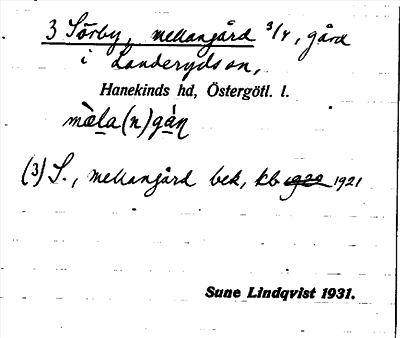 3 Sörby, mellangård 3/4, gård
i Landeryds sn,
Hanekinds hd, Östergötl. l.
mèla(n)gán
(3) S., mellangård bek, kb 1920 1921
Sune Lindqvist 1931.